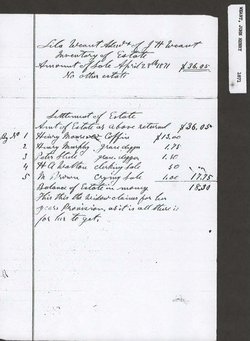 Silas Weant Admr of J H Weant
Inventory of Estate
Amount of Sale April 23rd 1871 $36.05
No other estate
Settlement of Estate
Amt of Estate as above returned $36.05
By No 1 Henry Coffin $13.00
2 Henry Murphy grave digger 1.75
3 Peter grave digger 1.50
4 H A Walton clerking Sale 50
5 M Brown Crying Sale 1.00 17.75
Balance of Estate in money 18.30
This the widow claims for her
years Provision, as it is all there is
for her to get.
WEANT, JOHN HENRY 1871